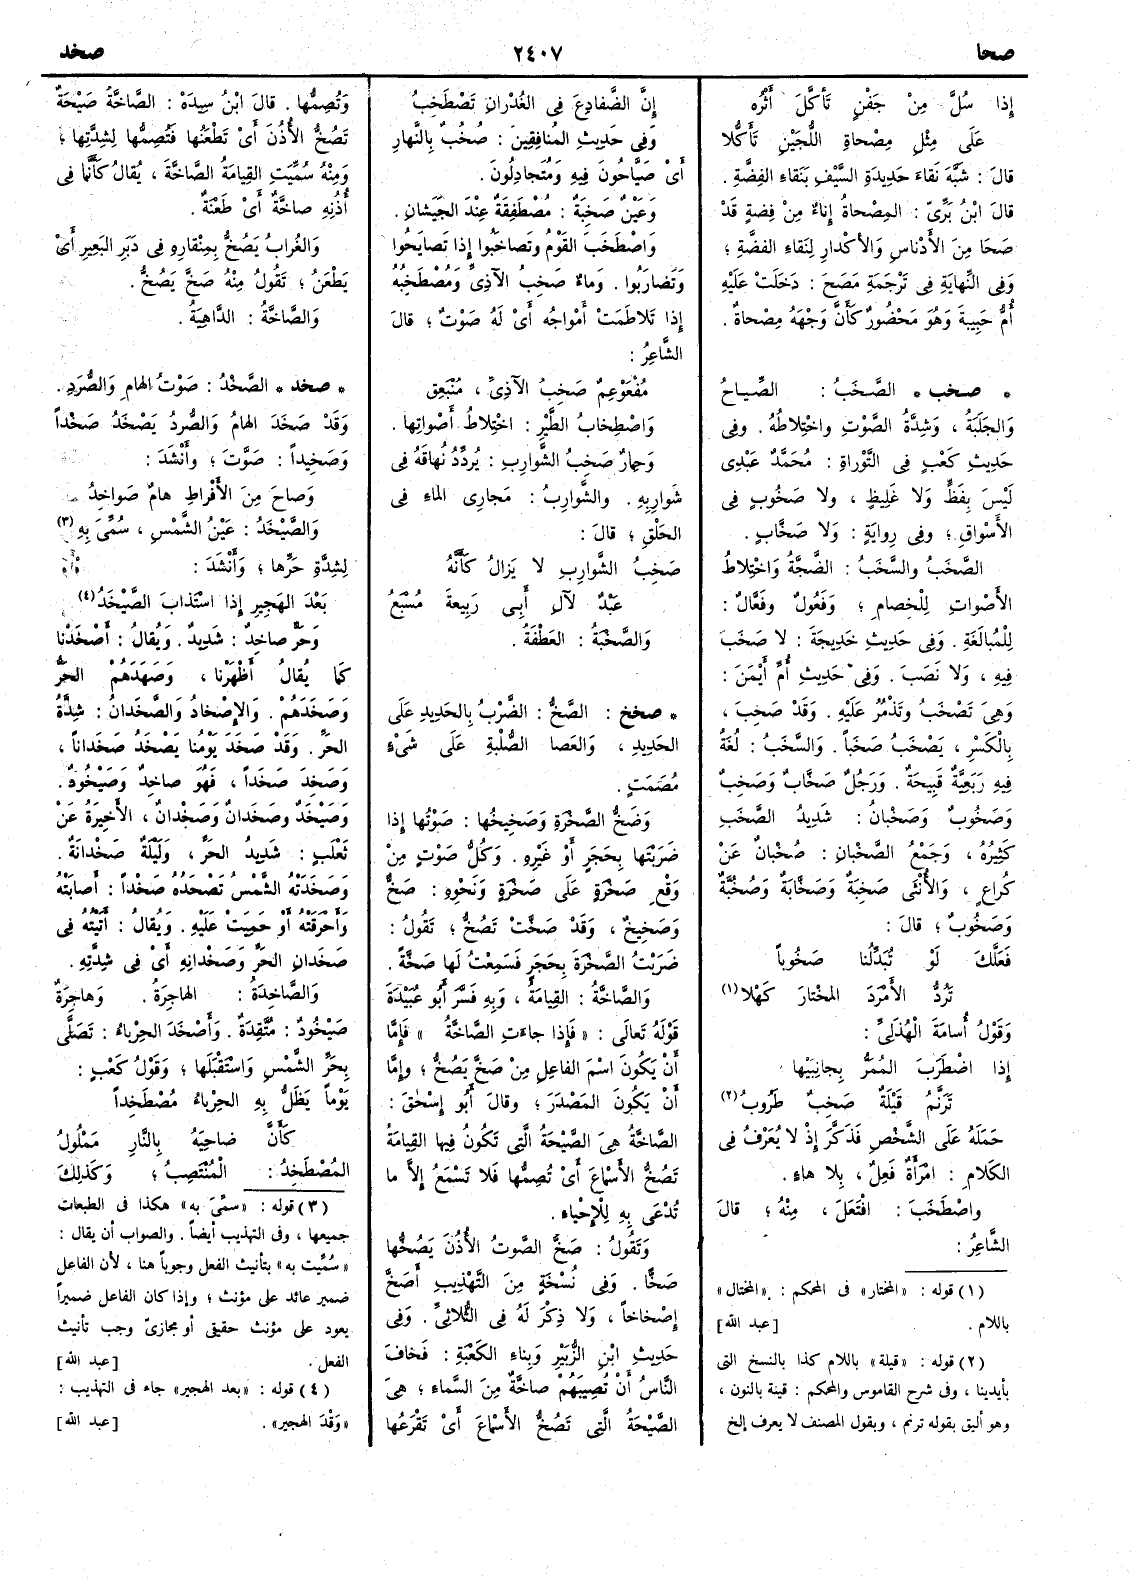 صحا
٢٤٠٧
صخد
إِذا سُلَّ مِنْ جَفْنٍ تَأَكَّلَ أَثْرُه
عَلَى مِثْلِ مِصْحاةِ اللُّجَيْنِ تَأَكُّلا
قالَ : شَبَّهَ نَقاءَ حَدِيدَةِ السَّيْفِ بِنَقاءِ الفِضَّةِ .
قالَ ابْنُ بَرِّىّ : المِصْحاةُ إِناءٌ مِنْ فِضَّةٍ قَدْ
صَحَا مِنَ الأَدْناسِ وَالأَكْدارِ لِنَقاءِ الفضَّةِ ؛
وَفِى النِّهايَةِ فِى تَرْجَمَةِ مَصَحَ : دَخَلَتْ عَلَيْهِ
أُمُّ حَبِيبَةَ وَهُوَ مَحْضُورٌ كَأَنَّ وَجْهَهُ مِصْحاةٌ .
* صخب * الصَّخَبُ : الصِّياحُ
وَالجَلَبَةُ ، وَشِدَّةُ الصَّوْتِ وَاخْتِلاطُهُ . وَفِى
حَدِيثِ كَعْبٍ فِى التَّوْراةِ : مُحَمَّدٌ عَبْدِى
لَيْسَ بِفَظٍّ وَلا غَلِيظٍ ، ولا صَخُوبٍ فِى
الأَسْواقِ ؛ وَفِى رِوايَةٍ : وَلا صَخَّابٍ .
الصَّخَبُ والسَّخَبُ : الضَّجَّةُ وَاخْتِلاطُ
الأَصْواتِ لِلْخِصامِ ؛ وَفَعُولٌ وفَعَّالٌ :
لِلْمُبالَغَةِ . وَفِى حَدِيثِ خَدِيجَةَ : لا صَخَبَ
فِيهِ ، وَلا نَصَبَ . وَفِى حَدِيثِ أُمِّ أَيْمَنَ :
وَهِىَ تَصْخَبُ وَتَذْمُرُ عَلَيْهِ . وَقَدْ صَخِبَ ،
بِالْكَسْرِ ، يَصْخَبُ صَخَباً . وَالسَّخَبُ : لُغَةٌ
فِيهِ رَبَعِيَّةٌ قَبِيحَةٌ . وَرَجُلٌ صَخَّابٌ وَصَخِبٌ
وَصَخُوبٌ وَصَخْبانُ : شَدِيدُ الصَّخَبِ
كَثِيرُهُ ، وَجَمْعُ الصَّخْبانِ : صُخْبانٌ عَنْ
كُراعٍ ، وَالأُنْثَى صَخِبَةٌ وَصَخَّابَةٌ وَصُخُبَّةٌ
وَصَخُوبٌ ؛ قالَ :
فَعَلَّكَ لَوْ تُبَدِّلُنا صَخُوباً
تَرُدُّ الأَمْرَدَ المخْتارَ كَهْلا(١)
وَقَوْلُ أُسامَةَ الهُذَلِىِّ :
إِذا اضْطَرَبَ المُمَرُّ بِجانِبَيْها
تَرَنَّمُ قَيْلَةٌ صَخِبٌ طَرُوبُ(٢)
حَمَلَهُ عَلَى الشَّخْصِ فَذَكَّرَ إِذْ لا يُعْرَفُ فِى
الكَلامِ : امْرَأَةٌ فَعِلٌ ، بِلا هاءٍ .
واصْطَخَبَ : افْتَعَلَ ، مِنْهُ ؛ قالَ
الشَّاعِرُ :
(١) قوله : «المختار» فى المحكم : «المختال»
باللام . [عبد الله]
(٢) قوله : «قيلة» باللام كذا بالنسخ التى
بأيدينا ، وفى شرح القاموس والمحكم : قينة بالنون ،
وهو أليق بقوله ترنم ، وبقول المصنف لا يعرف إلخ
إِنَّ الضَّفادِعَ فِى الغُدْرانِ تَصْطَخِبُ
وَفِى حَدِيثِ المُنافِقِينَ : صُخُبٌ بِالنَّهارِ
أَىْ صَيَّاحُونَ فِيهِ وَمُتَجادِلُونَ .
وَعَيْنٌ صَخِبَةٌ : مُصْطَفِقَةٌ عِنْدَ الجَيَشانِ .
وَاصْطَخَبَ القَوْمُ وَتَصاخَبُوا إِذا تَصايَحُوا
وَتَضارَبُوا . وَماءٌ صَخِبُ الآذِىِّ وَمُصْطَخِبُهُ
إِذا تَلاطَمَتْ أَمْواجُه أَىْ لَهُ صَوْتٌ ؛ قالَ
الشَّاعِرُ :
مُفْعَوْعِمٌ صَخِبُ الآذِىِّ ، مُنْبَعِق
وَاصْطِخابُ الطَّيْرِ : اخْتِلاطُ أَصْواتِها .
وَحِمارٌ صَخِبُ الشَّوارِبِ : يُرَدِّدُ نُهاقَهُ فِى
شَوارِبِهِ . والشَّوارِبُ : مَجارِى الماءِ فِى
الحَلْقِ ؛ قالَ :
صَخِبُ الشَّوارِبِ لا يَزالُ كَأَنَّهُ
عَبْدٌ لآلِ أَبِى رَبِيعَةَ مُسْبَعُ
وَالصَّخْبَةُ : العَطْفَةُ .
* صخخ : الصَّخُّ : الضَّرْبُ بِالحَدِيدِ عَلَى
الحَدِيدِ ، وَالعَصا الصُّلْبَةِ عَلَى شَىْءٍ
مُصْمَتٍ .
وَصَخُّ الصَّخْرَةِ وَصَخِيخُها : صَوْتُها إِذا
ضَرَبْتَها بِحَجَرٍ أَوْ غَيْرِهِ . وَكُلُّ صَوْتٍ مِنْ
وَقْعِ صَخْرَةٍ عَلَى صَخْرَةٍ وَنَحْوِهِ : صَخٌّ
وَصَخِيخٌ ، وَقَدْ صَخَّتْ تَصُخُّ ؛ تَقُولُ :
ضَرَبْتُ الصَّخْرَةَ بِحَجَرٍ فَسَمِعْتُ لَها صَخَّةً .
وَالصَّاخَّةُ : القِيامَةُ ، وَبِهِ فَسَّرَ أَبُو عُبَيْدَةَ
قَوْلَهُ تَعالَى : « فَإِذا جاءَتِ الصَّاخَّةُ » فَإِمَّا
أَنْ يَكُونَ اسْمَ الفاعِلِ مِنْ صَخَّ يَصُخُّ ؛ وإِمَّا
أَنْ يَكُونَ المَصْدَرَ ؛ وقالَ أَبُو إِسْحٰقَ :
الصَّاخَّةُ هِىَ الصَّيْحَةُ الَّتِى تَكُونُ فِيها القِيامَةُ
تَصُخُّ الأَسْماعَ أَىْ تُصِمُّها فَلا تَسْمَعُ إِلاَّ ما
تُدْعَى بِهِ لِلْإِحْياءِ .
وَتَقُولُ : صَخَّ الصَّوْتُ الأُذُنَ يَصُخُّها
صَخًّا . وَفِى نُسْخَةٍ مِنَ التَّهْذِيبِ أَصَخَّ
إِصْخاخاً ، وَلا ذِكْرَ لَهُ فِى الثُّلاثِىِّ . وَفِى
حَدِيثِ ابْنِ الزُّبَيْرِ وَبِناءِ الكَعْبَةِ : فَخافَ
النَّاسُ أَنْ تُصِيبَهُمْ صاخَّةٌ مِنَ السَّماءِ ؛ هِىَ
الصَّيْحَةُ الَّتِى تَصُخُّ الأَسْماعَ أَىْ تَقْرَعُها
وَتُصِمُّها . قالَ ابْنُ سِيدَهْ : الصَّاخَّةُ صَيْحَةٌ
تَصُخُّ الأُذُنَ أَىْ تَطْعَنُها فَتُصِمُّها لِشِدَّتِها ؛
وَمِنْهُ سُمِّيَتِ القِيامَةُ الصَّاخَّةَ ، يُقالُ كَأَنَّما فِى
أُذُنِهِ صاخَّةٌ أَىْ طَعْنَةٌ .
وَالغُرابُ يَصُخُّ بِمِنْقارِهِ فِى دَبَرِ البَعِيرِ أَىْ
يَطْعَنُ ؛ تَقُولُ مِنْهُ صَخَّ يَصُخُّ .
وَالصَّاخَّةُ : الدَّاهِيَةُ .
* صخد * الصَّخْدُ : صَوْتُ الهامِ وَالصُّرَدِ .
وَقَدْ صَخَدَ الهامُ وَالصُّرَدُ يَصْخَدُ صَخْداً
وَصَخِيداً : صَوَّتَ ؛ وأَنْشَدَ :
وَصاحَ مِنَ الأَفْراطِ هامٌ صَواخِدُ
وَالصَّيْخَدُ : عَيْنُ الشَّمْسِ ، سُمِّىَ بِهِ(٣)
لِشِدَّةِ حَرِّها ؛ وَأَنْشَدَ :
بَعْدَ الهَجِيرِ إِذا اسْتَذابَ الصَّيْخَدُ(٤)
وَحَرٌّ صاخِدٌ : شَدِيدٌ . وَيُقالُ : أَصْخَدْنا
كَما يُقالُ أَظْهَرْنا ، وَصَهَدَهُمُ الحَرُّ
وَصَخَدَهُمْ . وَالإِصْخادُ وَالصَّخَدانُ : شِدَّةُ
الحَرِّ . وَقَدْ صَخَدَ يَوْمُنا يَصْخَدُ صَخَداناً ،
وَصَخِدَ صَخَداً ، فَهُوَ صاخِدٌ وَصَيْخُودٌ .
وَصَيْخَدٌ وصَخَدانٌ وَصَخْدانٌ ، الأَخِيرَةُ عَنْ
ثَعْلَبٍ : شَدِيدُ الحَرِّ ، وَلَيْلَةٌ صَخَدانَةٌ .
وَصَخَدَتْهُ الشَّمْسُ تَصْخَدُهُ صَخْداً : أَصابَتْهُ
وَأَحْرَقَتْهُ أَوْ حَمِيَتْ عَلَيْهِ . وَيُقالُ : أَتَيْتُه فِى
صَخَدانِ الحَرِّ وَصَخْدانِهِ أَىْ فِى شِدَّتِهِ .
وَالصَّاخِدَةُ : الهاجِرَةُ . وَهاجِرَةٌ
صَيْخُودٌ : مُتَّقِدَةٌ . وَأَصْخَدَ الحِرْباءُ : تَصَلَّى
بِحَرِّ الشَّمْسِ وَاسْتَقْبَلَها ؛ وَقَوْلُ كَعْبٍ :
يَوْماً يَظَلُّ بِهِ الحِرْباءُ مُصْطَخِداً
كَأَنَّ ضاحِيَهُ بِالنَّارِ مَمْلُولُ
المُصْطَخِدُ : الْمُنْتَصِبُ ؛ وَكَذلِكَ
(٣) قوله : «سمِّىَ به» هكذا فى الطبعات
جميعها ، وفى التهذيب أيضاً . والصواب أن يقال :
«سُمِّيت به» بتأنيث الفعل وجوباً هنا ، لأن الفاعل
ضمير عائد على مؤنث ؛ وإذا كان الفاعل ضميراً
يعود على مؤنث حقيقى أو مجازىّ وجب تأنيث
الفعل . [عبد الله]
(٤) قوله : «بعد الهجير» جاء فى التهذيب :
«وَقْدَ الهجير» . [عبد الله]